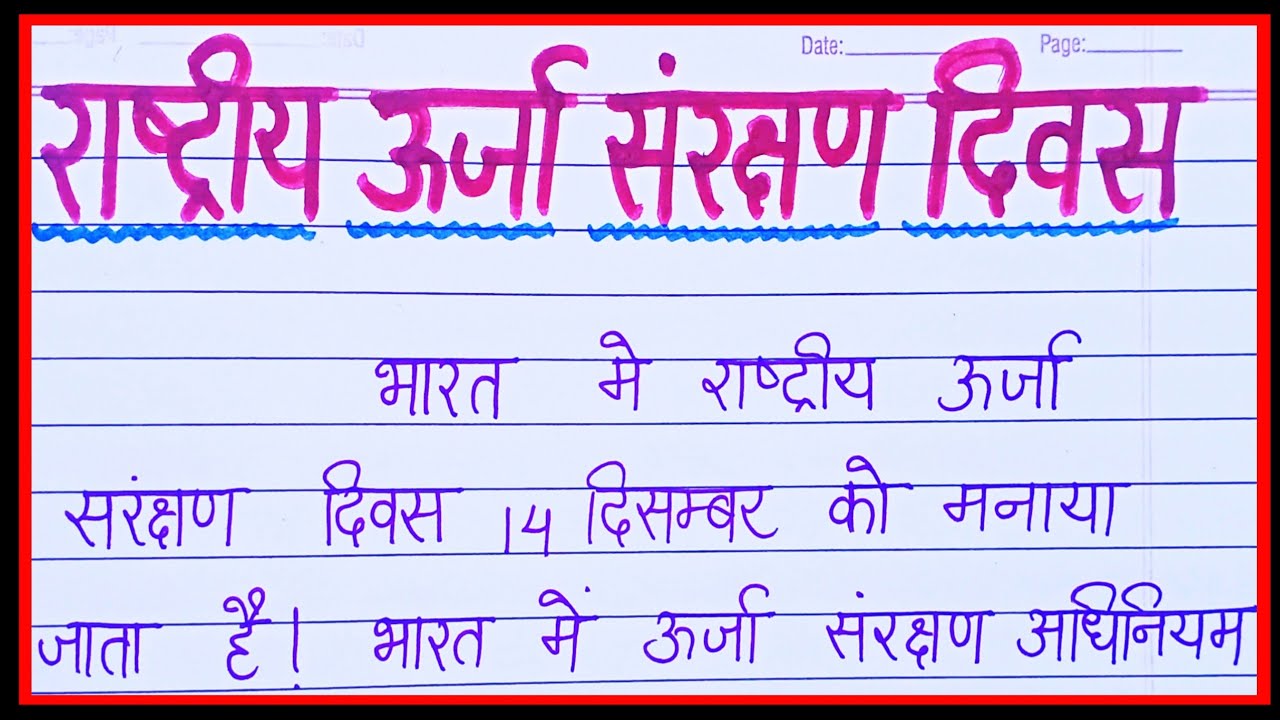 Date: Page:
राष्ट्रीय ऊर्जा संरक्षण दिवस
भारत मे राष्ट्रीय ऊर्जा
सरंक्षण दिवस 14 दिसम्बर को मनाया
जाता है। भारत में ऊर्जा संरक्षण अधिनियम